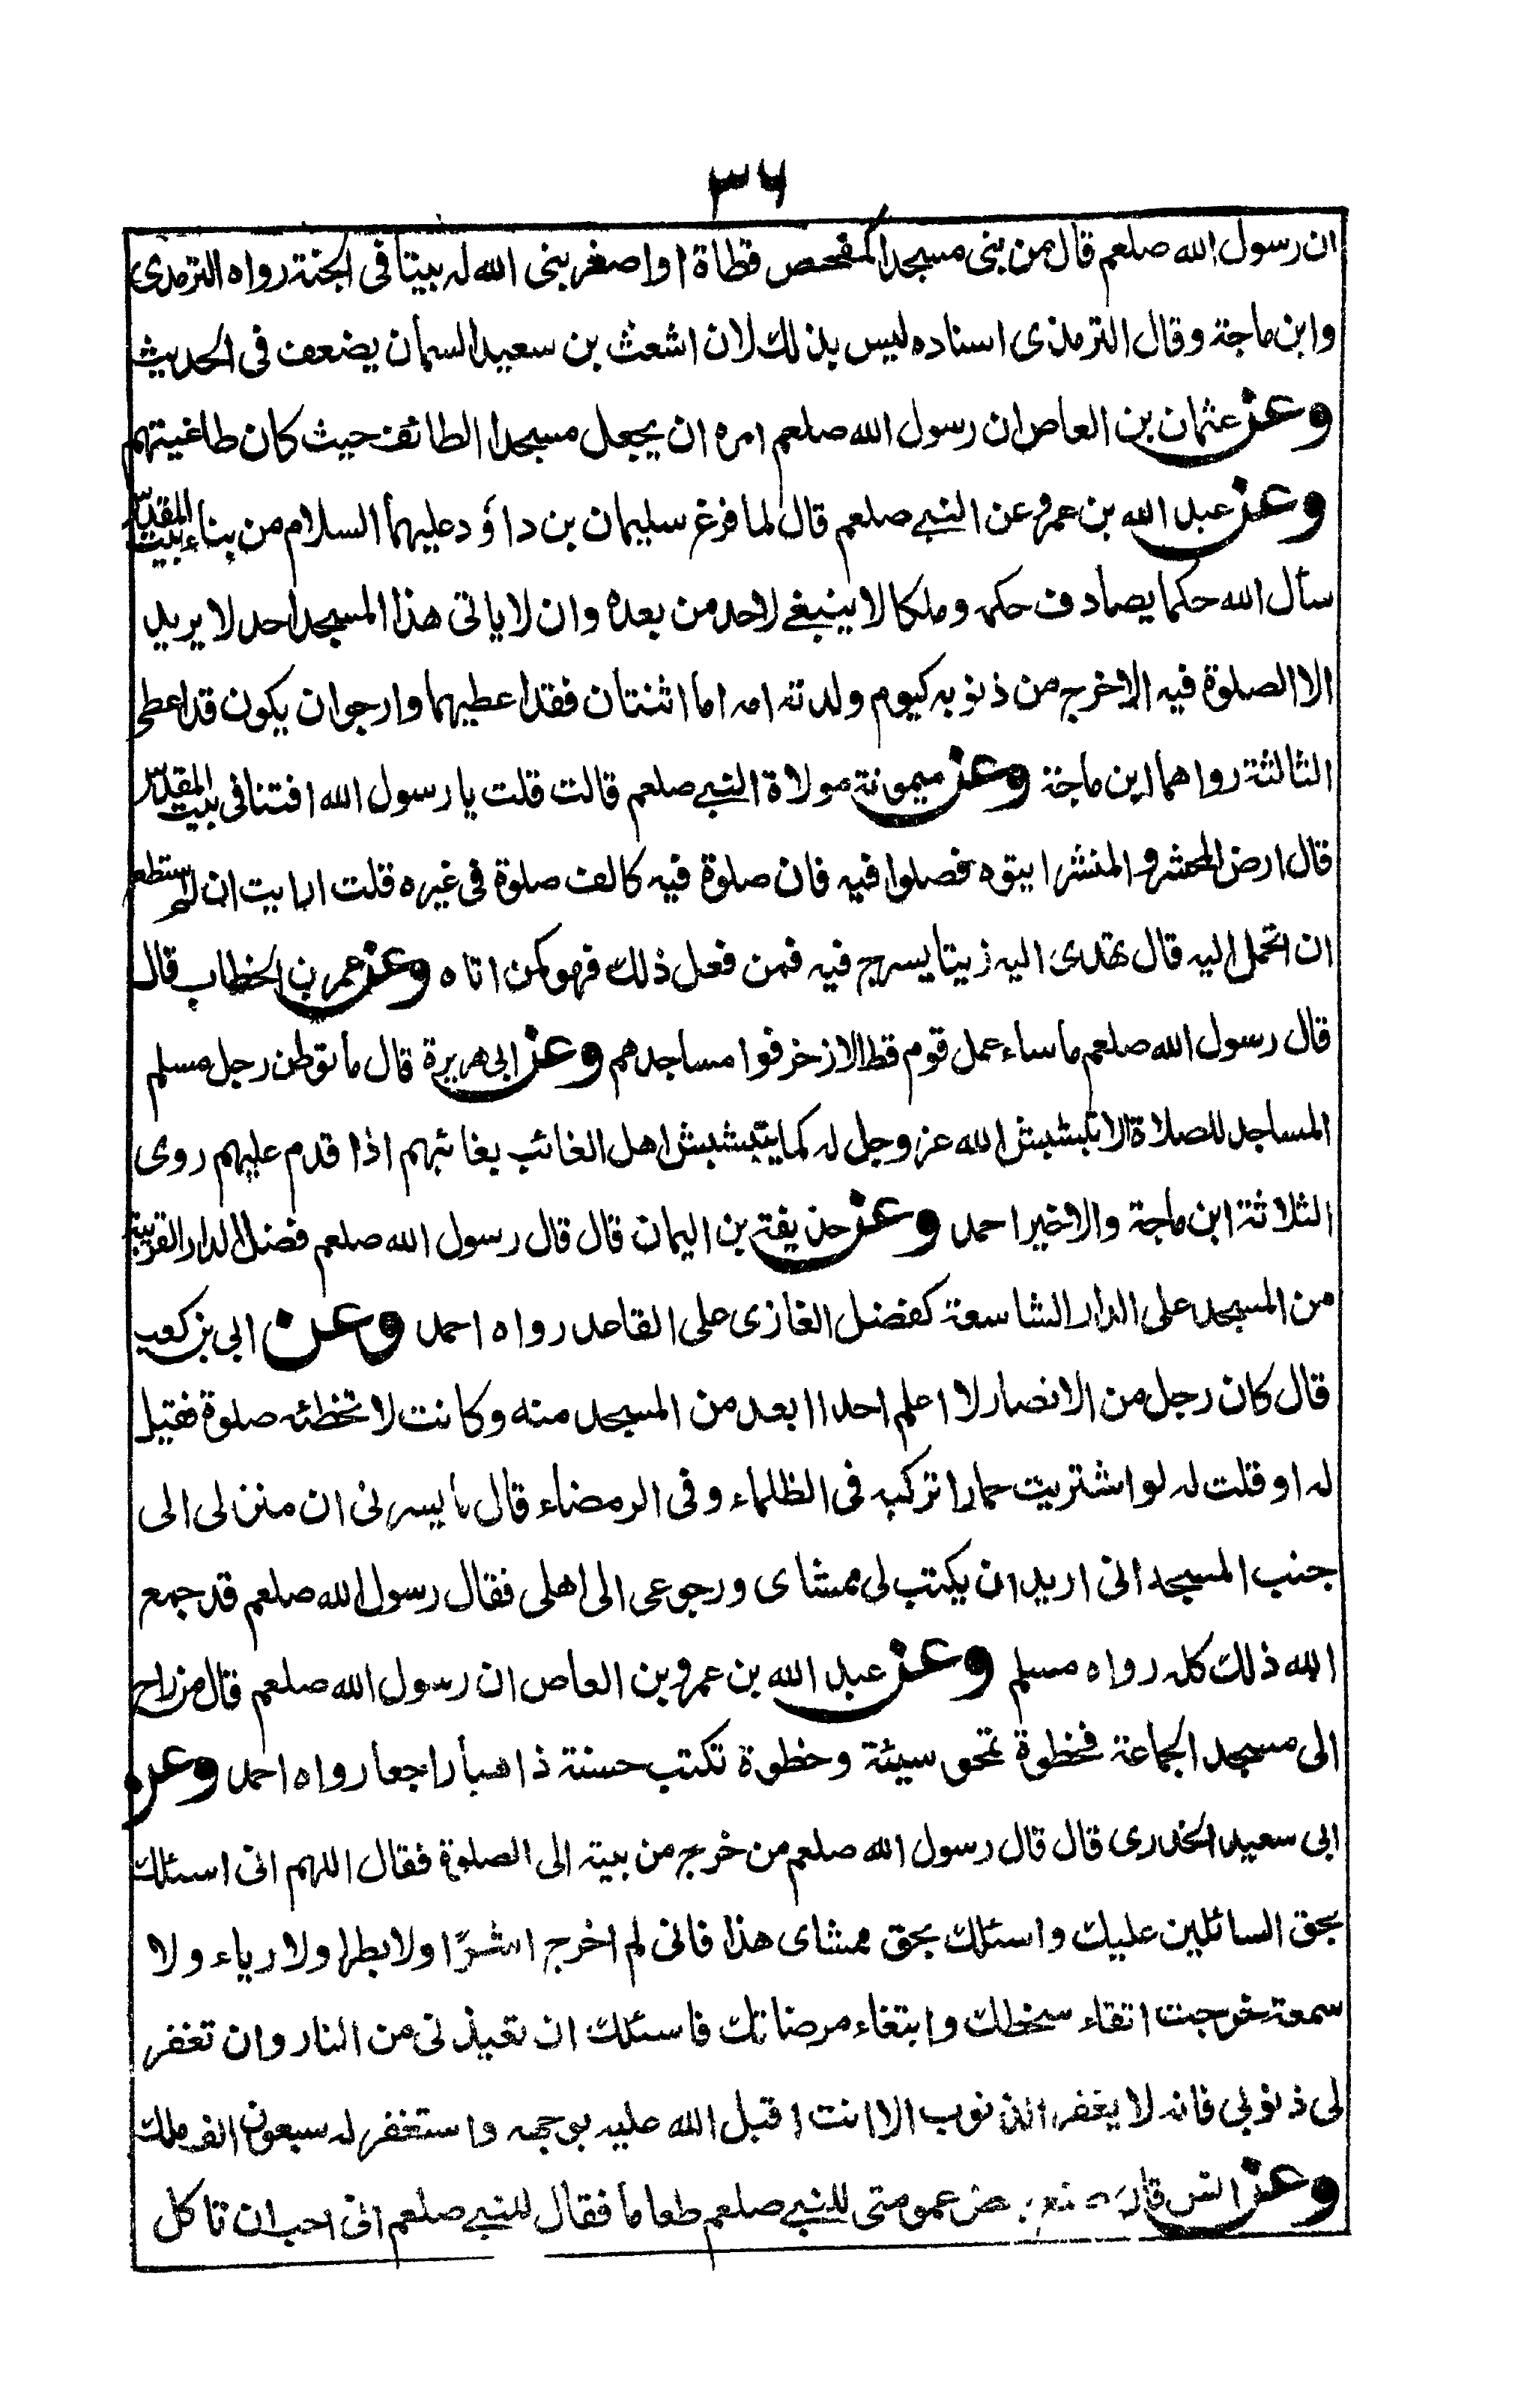 ٣٦
ان رسول الله صلعم قال من بنى مسجدا كمفحص قطاة او اصغر بنى الله له بيتا فى الجنة رواه الترمذى
وابن ماجة وقال الترمذى اسناده ليس بذلك لان اشعث بن سعيد السمان يضعف فى الحديث
وعن عثمان بن العاص ان رسول الله صلعم امره ان يجعل مسجدا الطائف حيث كان طاغيتهم
وعن عبد الله بن عمرو عن النبے صلعم قال لما فرغ سليمان بن داؤد عليهما السلام من بناء بيت المقدس
سأل الله حكما يصادف حكمه وملكا لا ينبغے لاحد من بعده وان لا ياتى هذا المسجد احد لا يريد
الا الصلوة فيه الا خرج من ذنوبه كيوم ولدته امه اما اثنتان فقد اعطيهما وارجو ان يكون قد اعطى
الثالثة رواهما ابن ماجة وعن ميمونة مولاة النبے صلعم قالت قلت يا رسول الله افتنا فى بيت المقدس
قال ارض المحشر و المنشر ايتوه فصلوا فيه فان صلوة فيه كالف صلوة فى غيره قلت ارايت ان لم استطع
ان اتحمل اليه قال تهدى اليه زيتا يسرج فيه فمن فعل ذلك فهو كمن اتاه وعن عمر بن الخطاب قال
قال رسول الله صلعم ما ساء عمل قوم قط الا زخرفوا مساجدهم وعن ابى هريرة قال ما توطن رجل مسلم
المساجد للصلاة الا تبشبش الله عز وجل له كما يتبشبش اهل الغائب بغائبهم اذا قدم عليهم روى
الثلاثة ابن ماجة والاخير احمد وعن حذيفة بن اليمان قال قال رسول الله صلعم فضل الدار القريبة
من المسجد على الدار الشاسعة كفضل الغازى على القاعد رواه احمد وعن ابى بن كعب
قال كان رجل من الانصار لا اعلم احدا ابعد من المسجد منه وكانت لا تخطئه صلوة فقيل
له او قلت له لو اشتريت حمارا تركبه فى الظلماء وفى الرمضاء قال ما يسرنى ان منزلى الى
جنب المسجد انى اريد ان يكتب لى ممشاى ورجوعى الى اهلى فقال رسول الله صلعم قد جمع
الله ذلك كله رواه مسلم وعن عبد الله بن عمرو بن العاص ان رسول الله صلعم قال من راح
الى مسجد الجماعة فخطوة تمحو سيئة وخطوة تكتب حسنة ذاهبأ راجعا رواه احمد وعن
ابى سعيد الخدرى قال قال رسول الله صلعم من خرج من بيته الى الصلوة فقال اللهم انى اسئلك
بحق السائلين عليك واسئلك بحق ممشاى هذا فانى لم اخرج اشرًا ولا بطرا ولا رياء ولا
سمعة خرجت اتقاء سخطك وابتغاء مرضاتك فاسئلك ان تعيذنى من النار وان تغفر
لى ذنوبى فانه لا يغفر الذنوب الا انت اقبل الله عليه بوجهه واستغفر له سبعون الف ملك
وعن انس قال صنع بعض عمومتى للنبے صلعم طعاما فقال للنبے صلعم انى احب ان تاكل